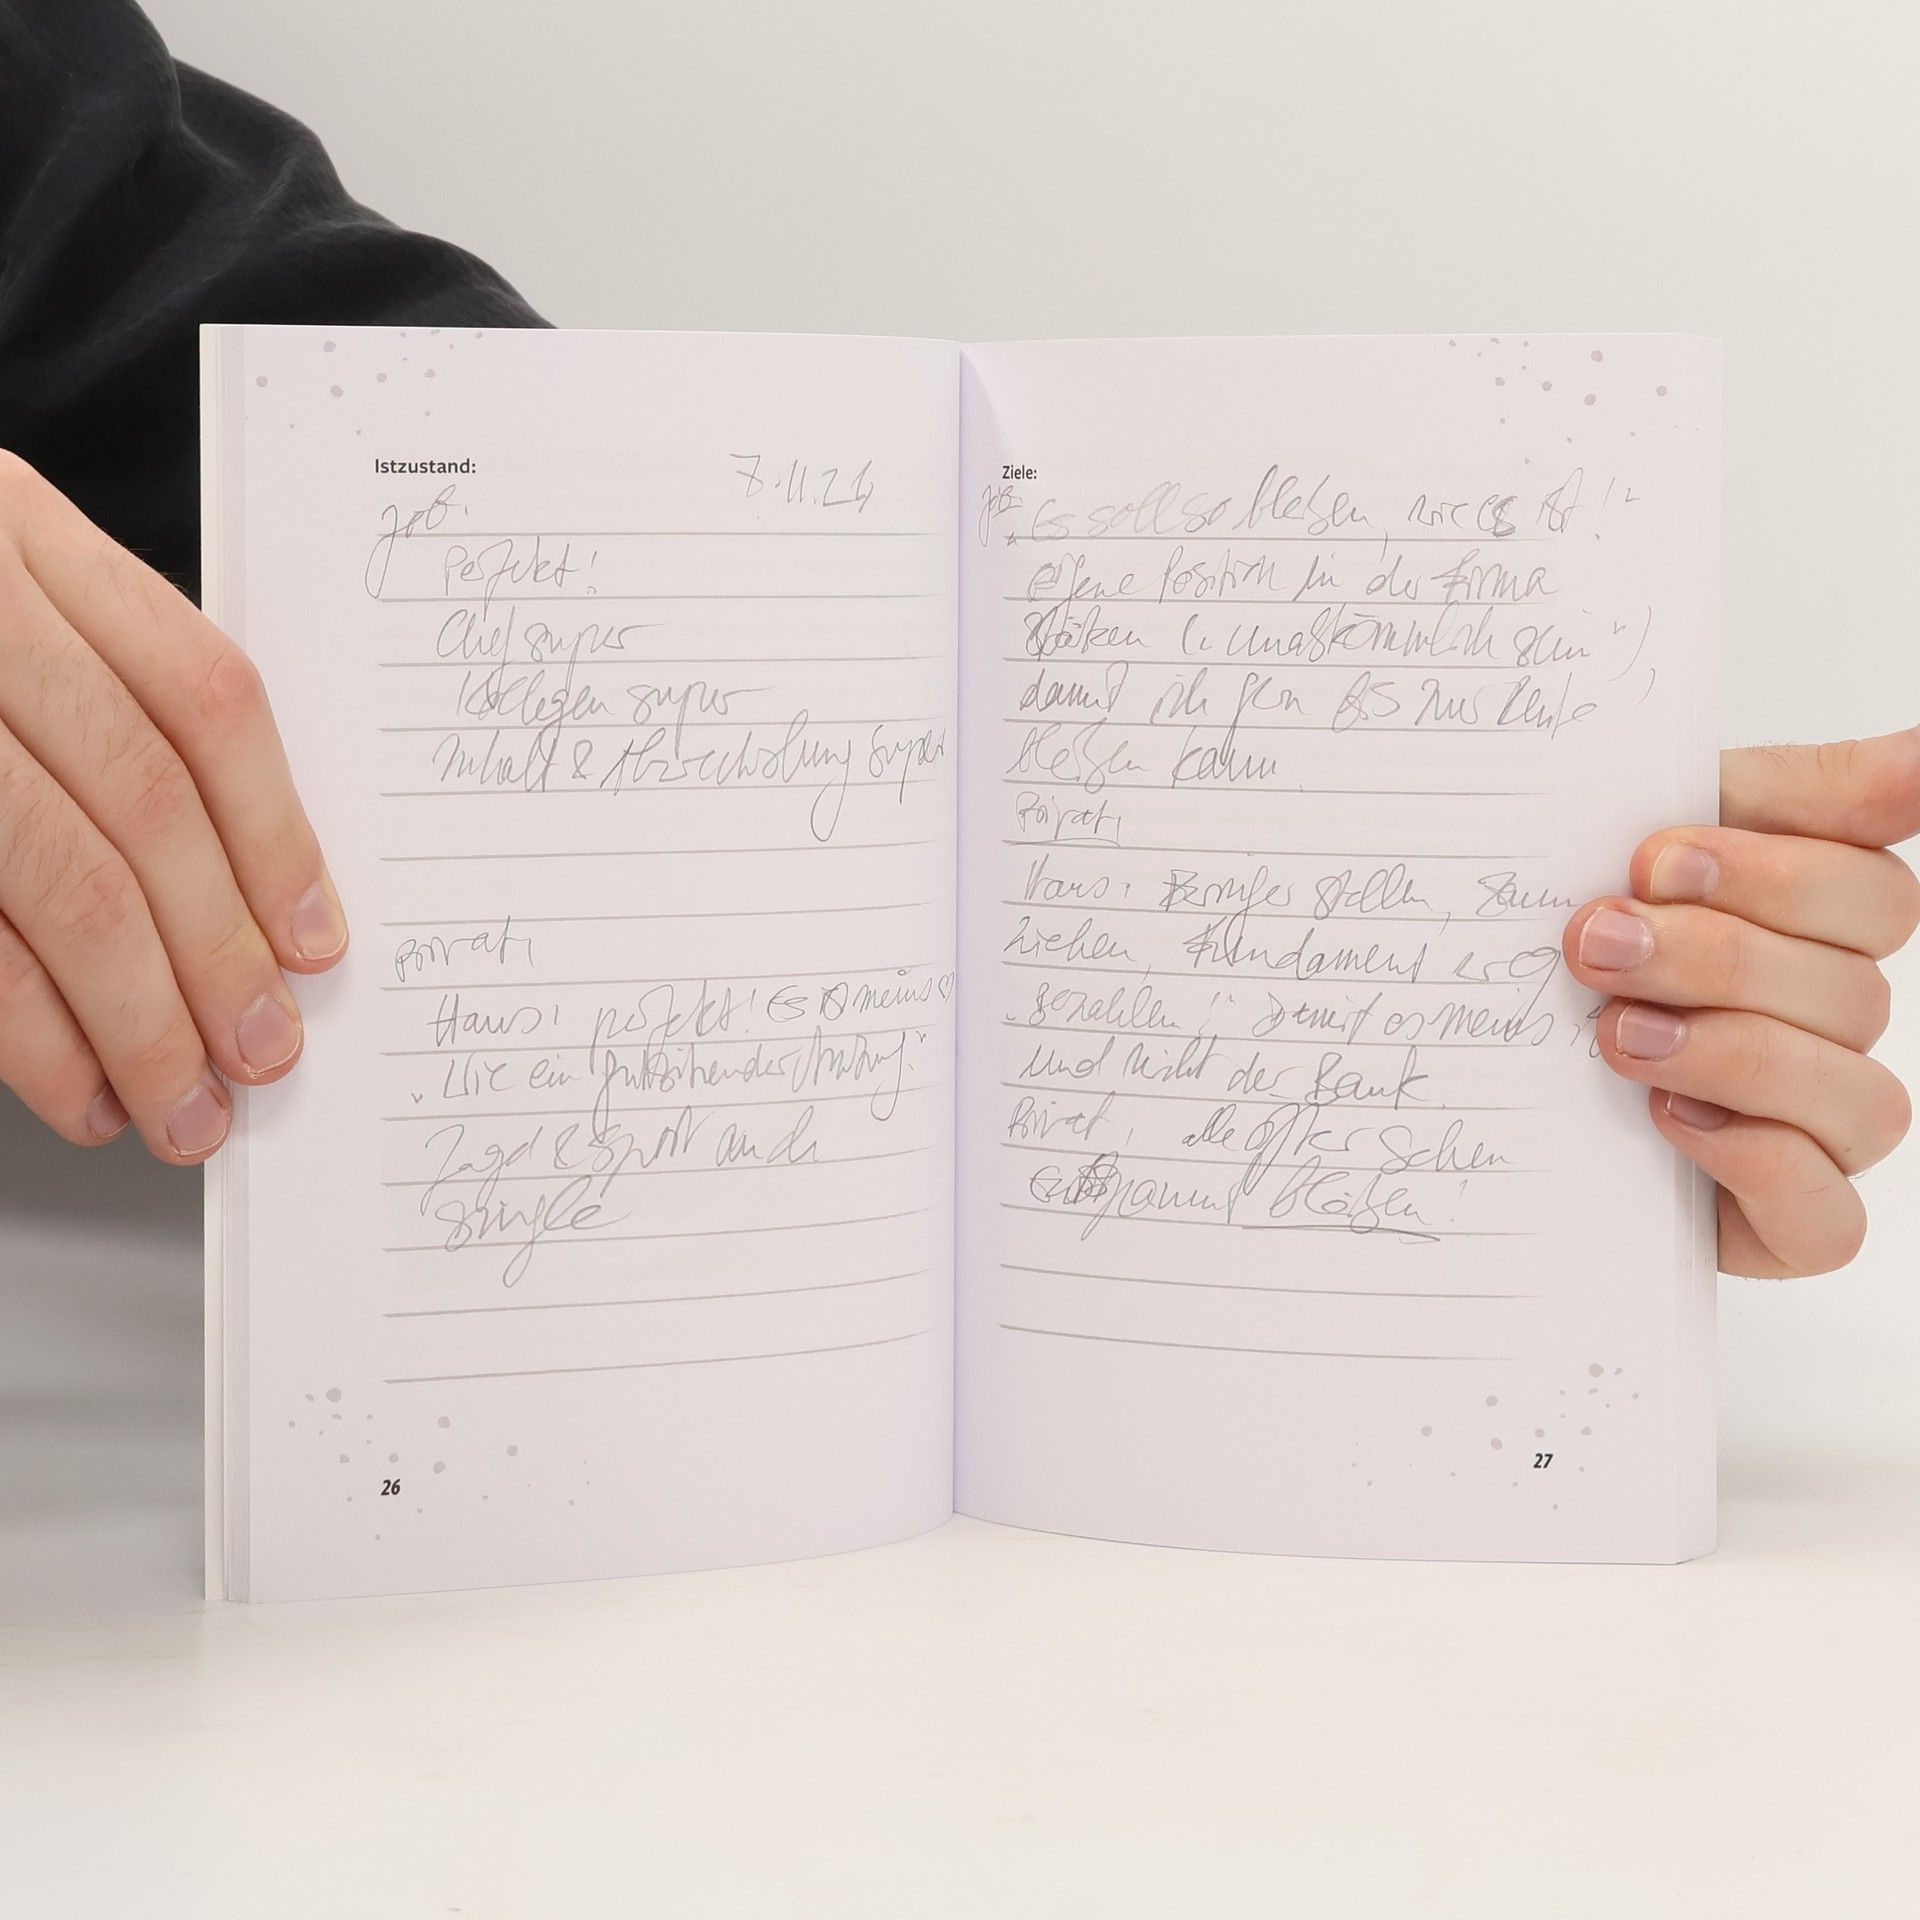 Istzustand:
7.11.21
Job:
Perfekt!
Chef super
Kollegen super
Inhalt & Abwechslung super
Privat:
Haus: perfekt! Es ist meins ♡
„Wie ein gutsitzender Anzug."
Jagd & Sport auch
Single
26
Ziele:
Job:
„Es soll so bleiben, wie es ist!"
eigene Position in der Firma
stärken („unabkömmlich sein"),
damit ich gern bis zur Rente
bleiben kann.
Privat:
Haus: fertig stellen, Zaun
ziehen, Fundament weg
„Bezahlen!" Damit es meins ist
und nicht der Bank.
Privat: alle öfter sehen
entspannt bleiben!
27